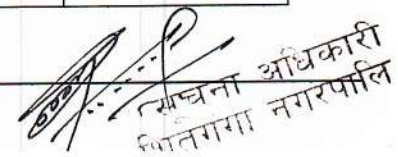 सूचना अधिकारी
शितगंगा नगरपालि